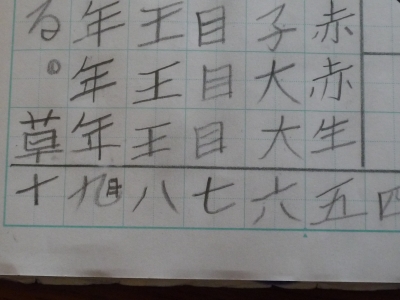 四
赤赤生五
子大大六
目目目七
王王王八
年年年
る。草十